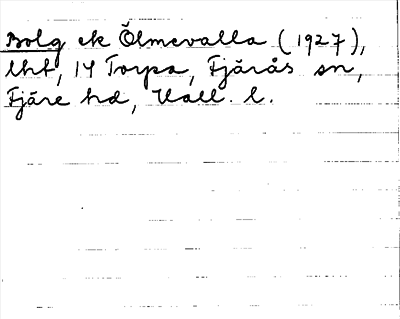 Bolg ek Ölmevalla (1927),
lht, 14 Torpa, Fjärås sn,
Fjäre hd, Hall. l.